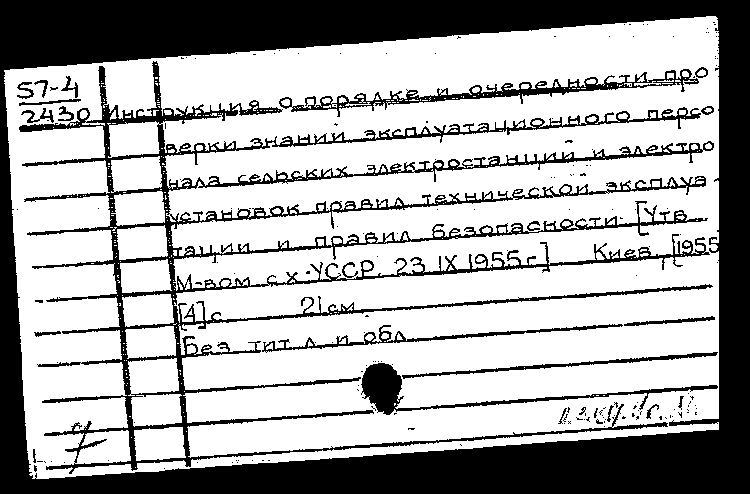 57-4
2430 Инструкция о порядке и очередности про
верки знаний эксплуатационного персо
нала сельских электростанций и электро
установок правил технической эксплуа-
тации и правил безопасности. [Утв
М-вом с.х. УССР. 23 IX 1955 г.] Киев, [1955
[4] с 21 см.
Без тит л и обл